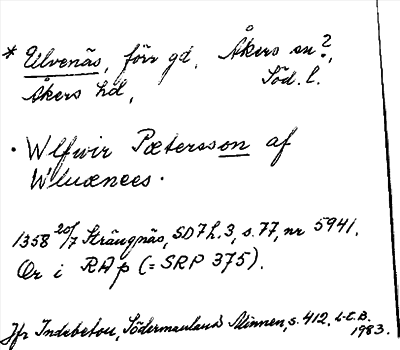 * Ulvenäs, förr gd, Åkers sn?,
Åkers hd, Söd. l.
· Wlfwir Pætersson af
Wluænees.
1358 20/7 Strängnäs, SD 7 h. 3, s. 77, nr 5941.
Or i RAp (= SRP 375).
Jfr Indebetou, Södermanlands Minnen, s. 412. L-E.B.
1983.